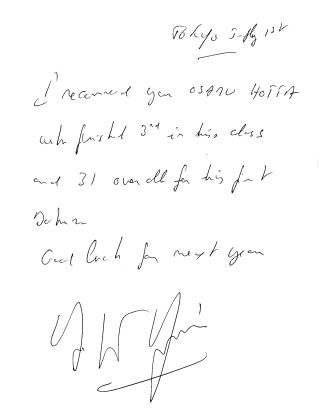 Tokyo July 1st
I recommend you OSAMU HOTTA
who finished 3rd in his class
and 31 overall for his first
Dakar
Good luck for next year